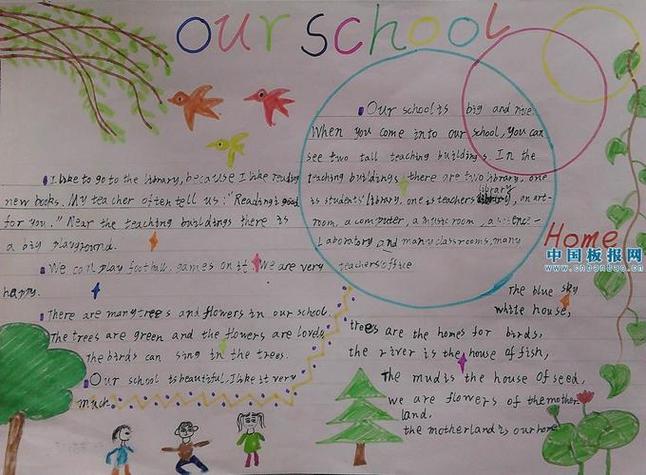 our school
Our school is big and nice.
When you come into our school, you can
see two tall teaching buildings. In the
teaching buildings, there are two library, one
is students' library, one is teachers library, an art-
room, a computer, a music room, a science-
Laboratory and many classrooms, many
teachers' office
I like to go to the library, because I like reading
new books. My teacher often tell us: "Reading is good
for you." Near the teaching buildings there is
a big playground.
We can play football, games on it. We are very
happy.
There are many trees and flowers in our school
The trees are green and the flowers are lovely
the birds can sing in the trees.
Our school is beautiful, I like it very
much.
Home
中国板报网
www.cnbanbao.cn
The blue sky
white house,
trees are the homes for birds,
the river is the house of fish,
The mud is the house of seed,
we are flowers of the mother
land,
the motherland is our home